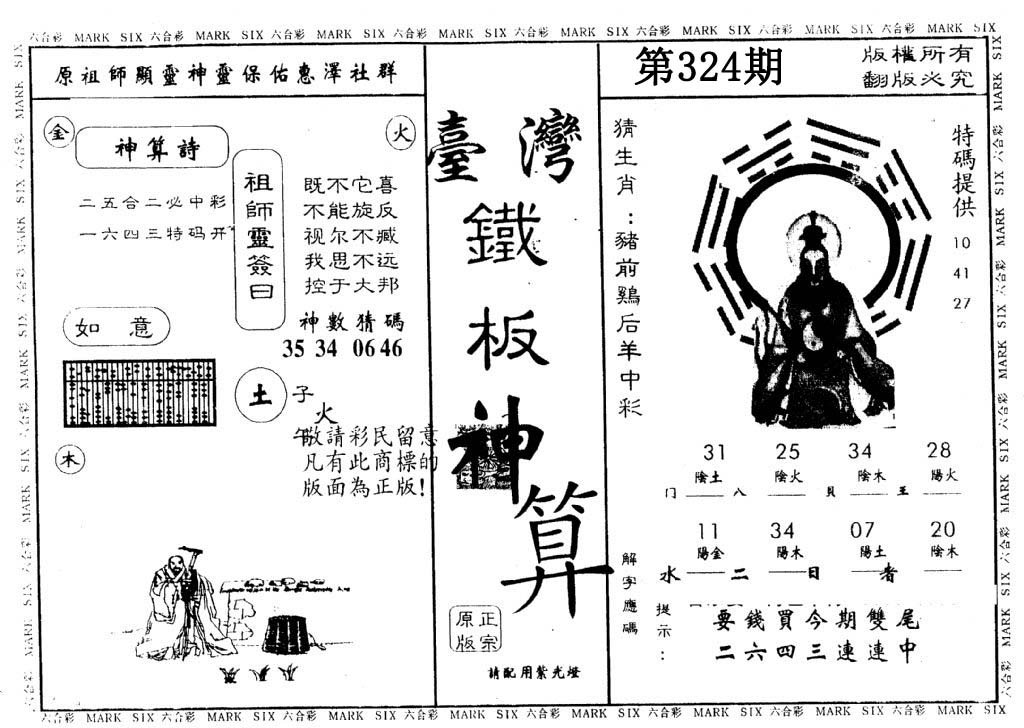 六合彩 MARK SIX 六合彩 MARK SIX 六合彩 MARK SIX 六合彩 MARK SIX 六合彩 MARK SIX 六合彩 MARK SIX 六合彩 MARK SIX 六合彩 MARK SIX
原祖師顯靈神靈保佑惠澤社群
金
神算詩
火
二五合二必中彩
一六四三特码开
祖師靈簽曰
既不它喜
不能旋反
视尔不臧
我思不远
控于大邦
如意
神數猜碼
35 34 06 46
土
子
火
午
木
敬請彩民留意
凡有此商標的
版面為正版!
臺灣
鐵
板
神
算
正宗
原版
請配用紫光燈
第324期
版權所有
翻版必究
猜生肖:豬前鷄后羊中彩
特碼提供
10
41
27
31 25 34 28
陰土 陰火 陰木 陽火
门 八 貝 王
11 34 07 20
陽金 陽木 陽土 陰木
水 二 日 者
解字應碼
提示:
要錢買今期雙尾
二六四三連連中
六合彩 MARK SIX 六合彩 MARK SIX 六合彩 MARK SIX 六合彩 MARK SIX 六合彩 MARK SIX 六合彩 MARK SIX 六合彩 MARK SIX 六合彩 MARK SIX